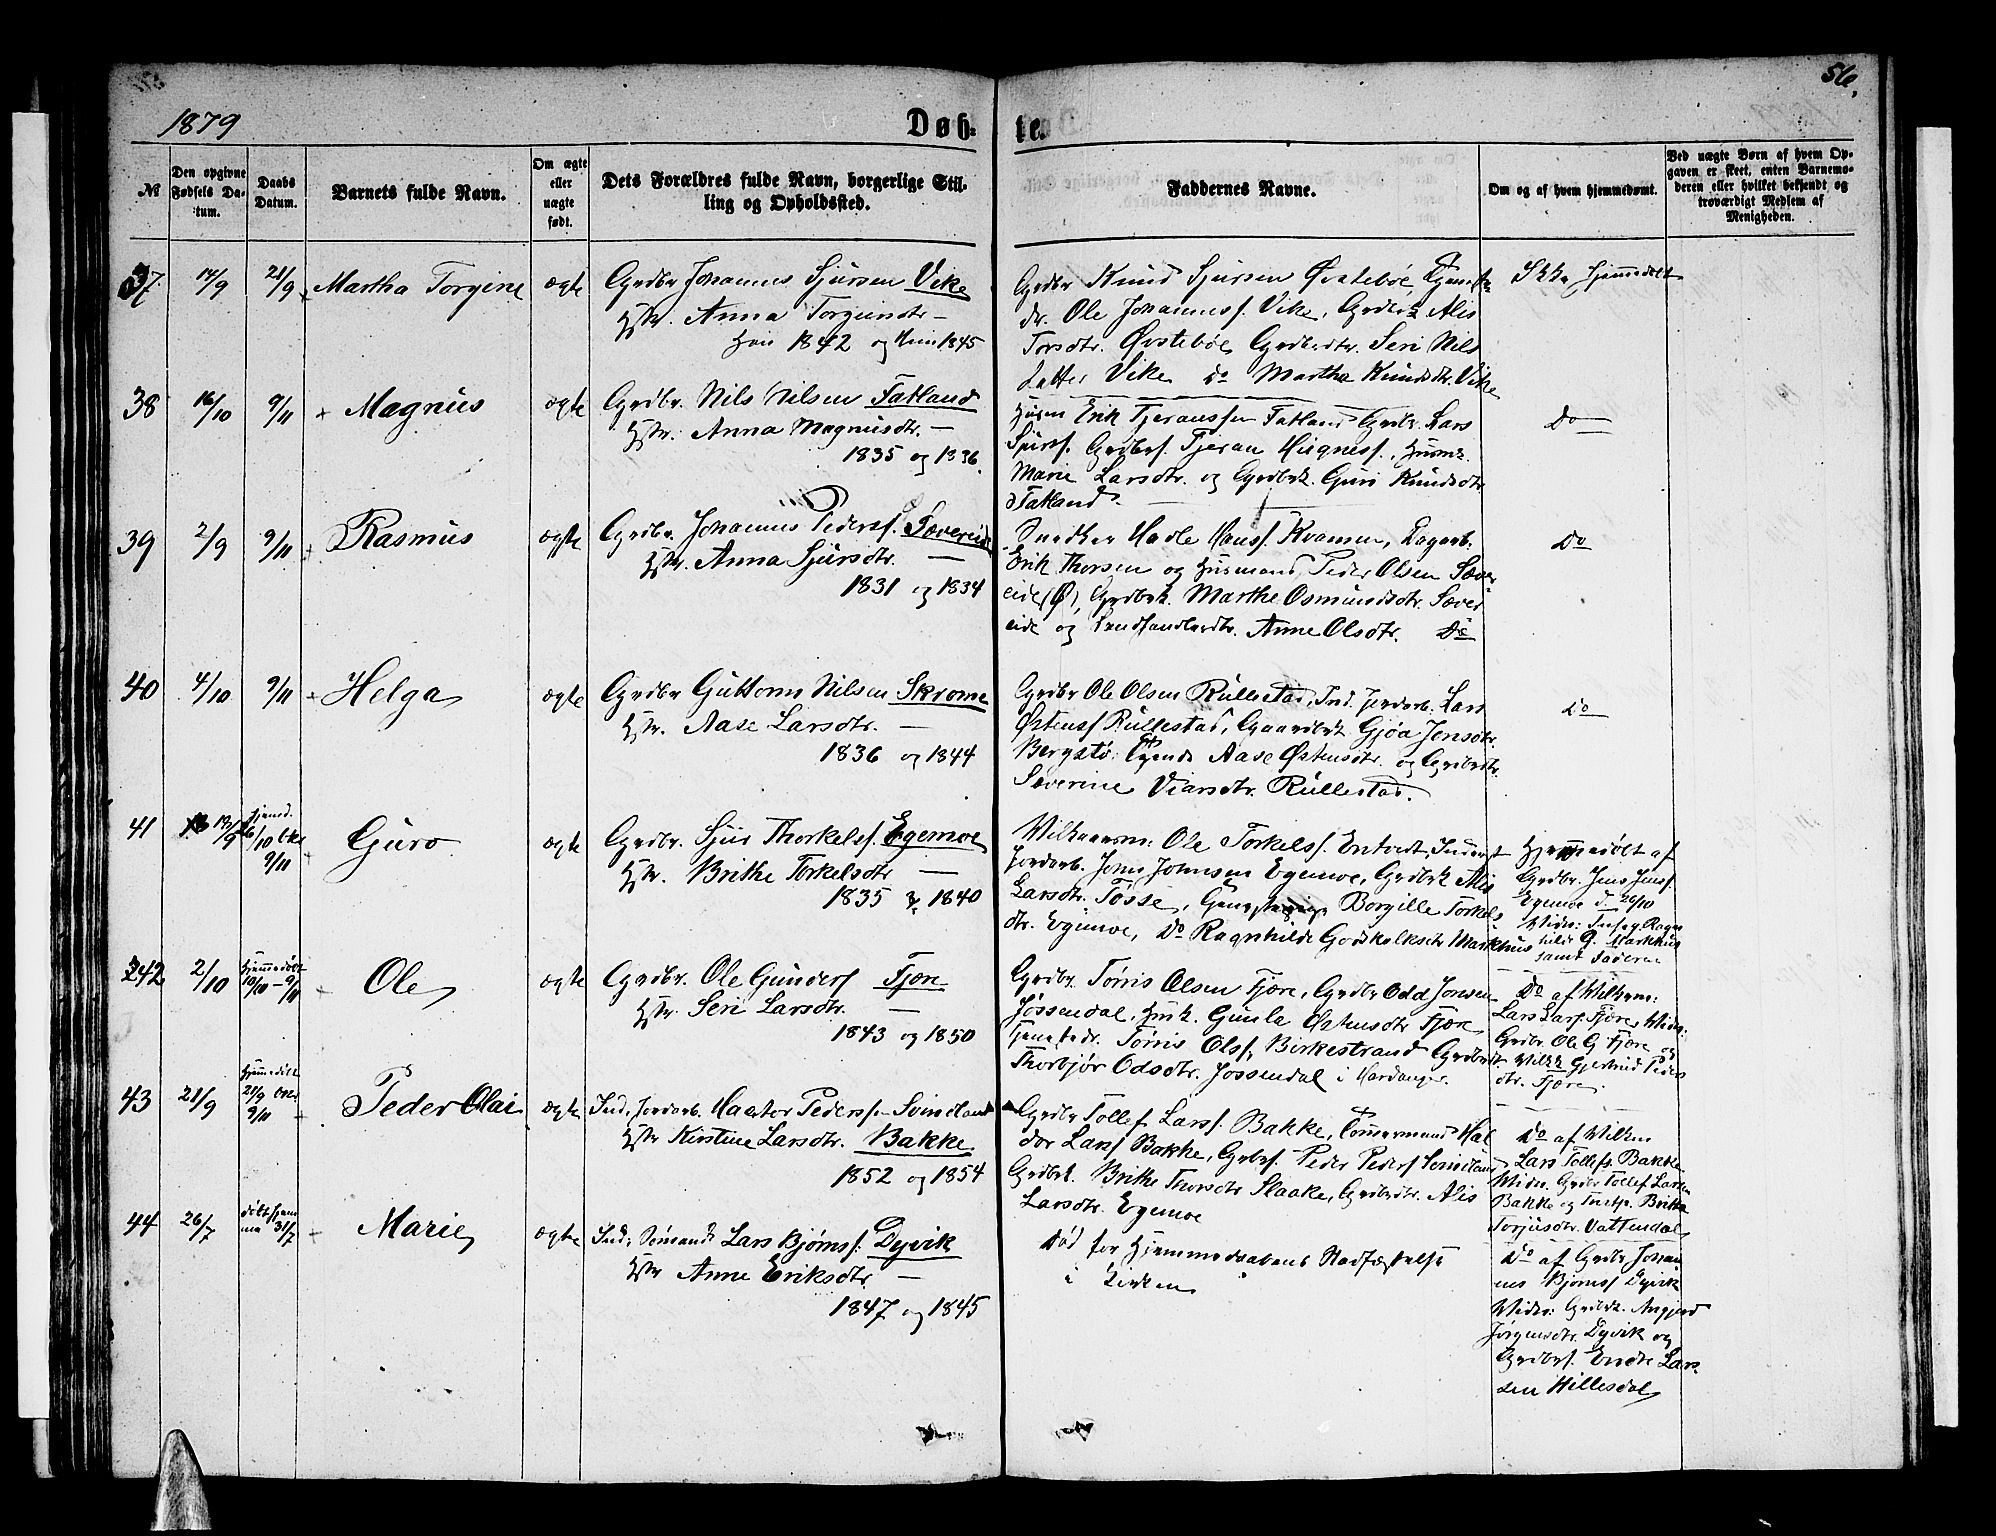 56.
1879
Døb-
te.
№
Den opgivne Fødsels Da-
tum.
Daabs Datum.
Barnets fulde Navn.
Om ægte eller uægte født.
Dets Forældres fulde Navn, borgerlige Stil-
ling og Opholdssted.
Faddernes Navne.
Om og af hvem hjemmedøbt.
Ved uægte Børn af hvem Op-
gaven er skeet, enten Barnemo-
deren eller hvilket bekjendt og
troværdigt Medlem af
Menigheden.
37. 14/9 21/9 Martha Torgine ægte Grdbr Johannes Sjursen Vike
Hstr. Anna Torgeirsdtr. —
Han 1842 og Hun 1845
Grdbr Knud Sjursen Øvstebøe,
dr. Ole Johanness. Vike, Grdbrk Alis
Torsdtr. Øvstebøe, Grdbrdtr. Seri Nils
datter Vike Do Martha Knudsdtr. Vike
Ikke hjemmedøbt
38 16/10 9/11 Magnus ægte Grdbr. Nils Nilsen Fatland
Hstr. Anna Magnusdtr. —
1835 og 1836.
Husm Erik Tjeranssen Fatland Grdbr. Lars
Sjurs. Grdbrs. Tjeran Magness., Husmk.
Marie Larsdtr. og Grdbrk. Guri Knudsdtr
Fatland.
Do
39 2/9 9/11 Rasmus ægte Grdbr. Johannes Peders. Sævereid
Hstr. Anna Sjursdtr. —
1831 og 1834
Snedker Hadle Hans. Kvamen, Dagarb.
Erik Thorsen og Husmand Peder Olsen Sæver
eide (Ø), Grdbrk. Marthe Osmundsdtr. Sæver
eide og Landhandlerdtr. Anne Olsdtr. Do
Do
40 4/10 9/11 Helga ægte Grdbr Guttorm Nilsen Skrome
Hstr. Aase Larsdtr. —
1836 og 1844
Grdbr Ole Olsen Rullestad, Ind. Jordarb. Lars
Østens. Rullestad, Gaardbrk Gjøa Jensdtr.
Bergstø. Aase Østensdtr. og Grdbrdtr.
Severine Viarsdtr. Rullestad.
Do
41 13/9 hjemd.
6/10
9/11 Guro ægte Grdbr. Sjur Thorkels. Egemoe
Hstr. Brithe Torkelsdtr —
1835 & 1840
Vilkaarsm: Ole Torkels. Entvedt, Inderst
Jordarb. Jens Johnsen Egemoe, Grdbrk Alis
Larsdtr. Tøsse, Borgille Torkels
dtr. Egemoe, Do Ragnhilde Godskalksdtr Markhus
Hjemmedøbt af
Grdbr. Jens Jenss.
Egemoe d. 26/10
Vidn: Indsg. Ragn
hilde G. Markhus
samt Faderen
242 2/10 hjemmedøbt
10/10 — 9/11 Ole ægte Grdbr. Ole Gunders Fjære
Hstr. Seri Larsdtr. —
1843 og 1850
Grdbr. Tørris Olsen Fjære, Grdbr Odd Jonsen
Jøssendal, Husk. Gunla Østensdtr Fjære
Tjenestedr. Tørris Ols. Birkestrand Grdbrdt
Thorbjør Odsdtr. Jossendal i Hardanger.
Do af Vilkrm:
Lars Lars. Fjære, Vidn:
Grdbr. Ole G Fjære og
Vilkk Gjertrud Peders
dtr. Fjære.
43 21/9 hjemmedøbt
21/9
9/11 Peder Olai ægte Ind. Jordarb. Haaktor Pederssen Svindland
Hstr Kirstine Larsdtr. Bakke
1852 og 1854
Grdbr Tollef Larss. Bakke, Tømmermand Hal
dor Larss Bakke, Grbrs. Peder Peders Svindland
Grdbrk. Brithe Thorsdtr Slaake, Grdbrdtr. Alis
Larsdtr. Egemoe
Do af Vilkm
Lars Tollefs. Bakke
Vidn. Grdbr Tollef Larsen
Bakke og Indsp. Brithe
Torjusdtr. Vattendal
44 26/7 døbt hjem
me 31/7 Marie ægte Ind: Sømand Lars Bjørns. Dyvik
Hstr Anne Eriksdtr —
1847 og 1845
Død for Hjemmedaabens Stadfæstelse
i Kirken
Do af Grdbr. Johan
nes Bjørns Dyvik
Vidn: Grdbrk. Angjerd
Jørgensdtr. Dyvik og
Grdbrs. Endre Lars-
sen Hillesdal